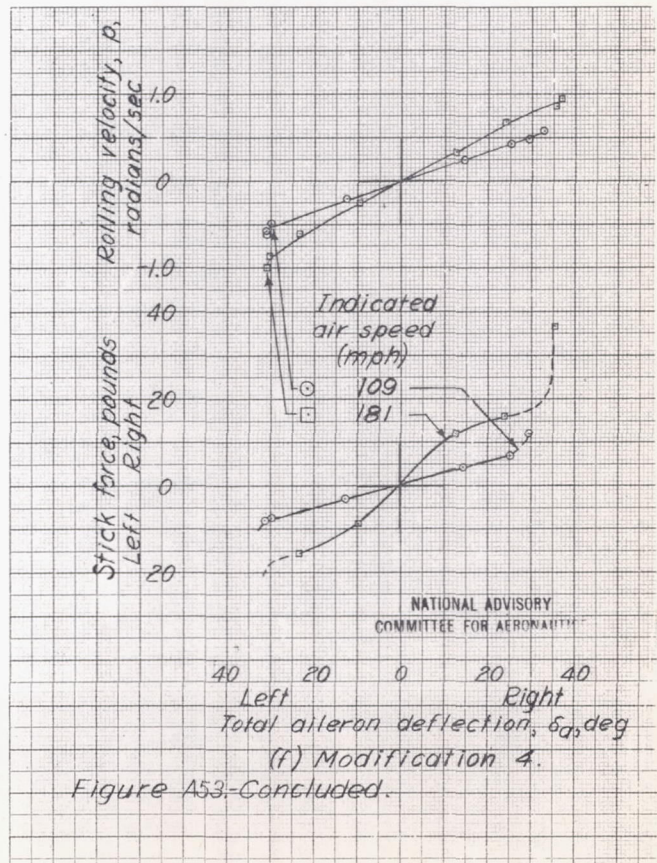 Rolling velocity, p,
radians/sec
1.0
0
-1.0
Stick force, pounds
Left Right
40
20
0
20
Indicated
air speed
(mph)
109
181
NATIONAL ADVISORY
COMMITTEE FOR AERONAUTICS
40 20 0 20 40
Left Right
Total aileron deflection, δa, deg
(f) Modification 4.
Figure A53.-Concluded.